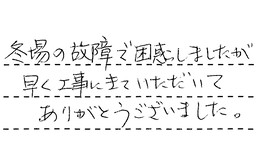 冬場の故障で困惑しましたが
早く工事にきていただいて
ありがとうございました。